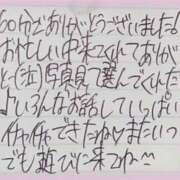 60分ありがとうございました!
お忙しい中来てくれてありが
と~(泣)写真見て選んでくれた
♪いろんなお話していっぱい
イチャイチャできたね♡またいつ
でも遊びに来てね^^